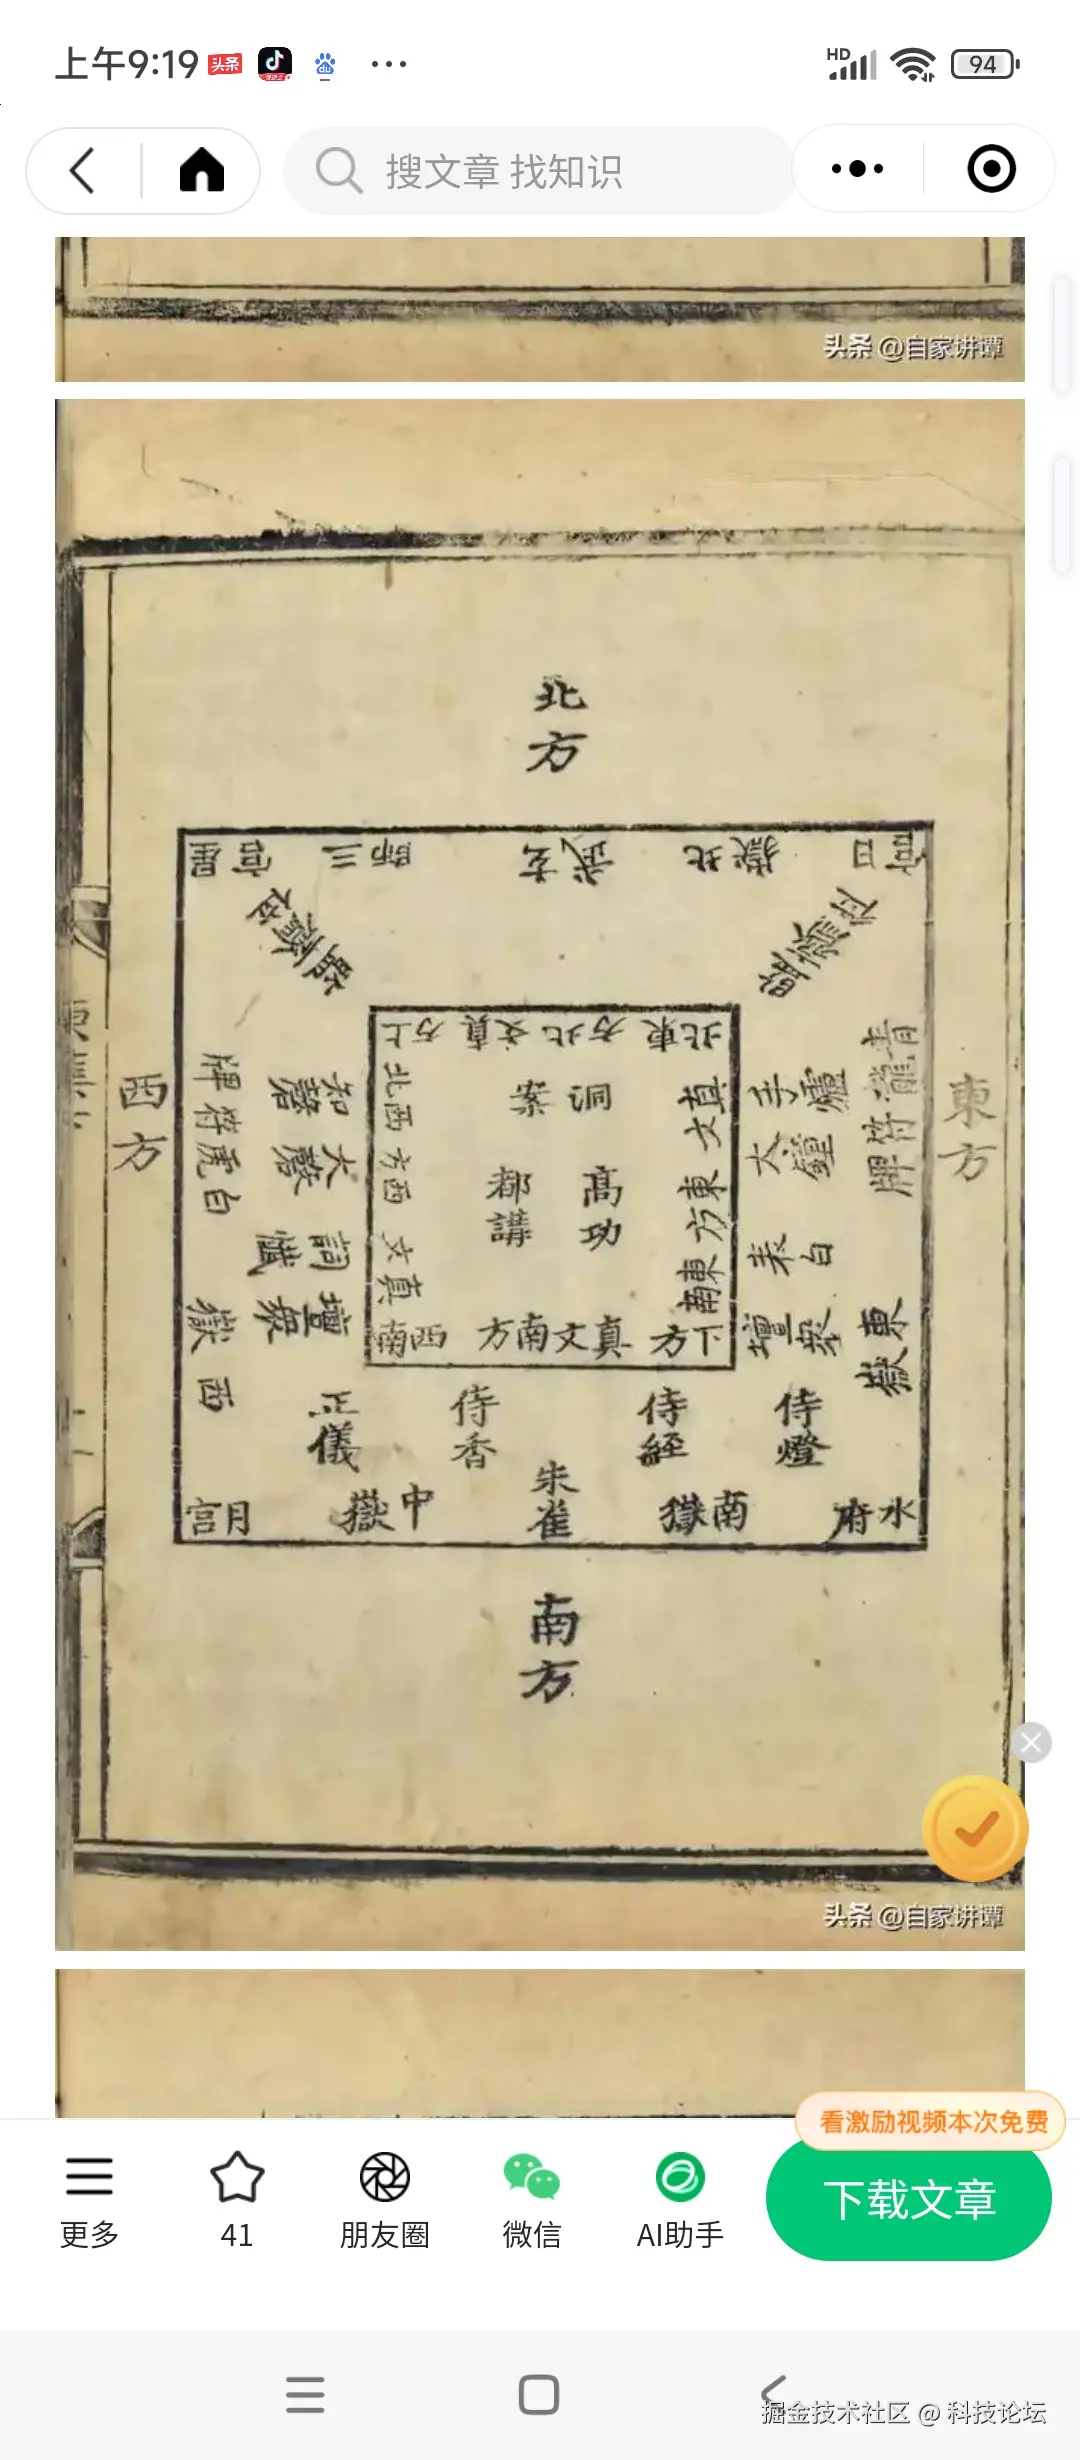 上午9:19 头条 du ... HD 94
搜文章 找知识
头条 @自家讲谭
北方
星官 三師 玄武 北嶽 日宮
上方 真文 北方 東北
北西 方西 文真
真文 東方 東南
洞案
高功
都講
西南 方南文真 下方
西方
白虎符牌
西嶽
知磬
大磬
詞懺
壇衆
東方
青龍符牌
東嶽
手爐
大鐘
白表
壇衆
正儀
侍香
侍經
侍燈
月宮
中嶽
朱雀
南嶽
水府
南方
头条 @自家讲谭
看激励视频本次免费
更多
41
朋友圈
微信
AI助手
下载文章
掘金技术社区 @ 科技论坛